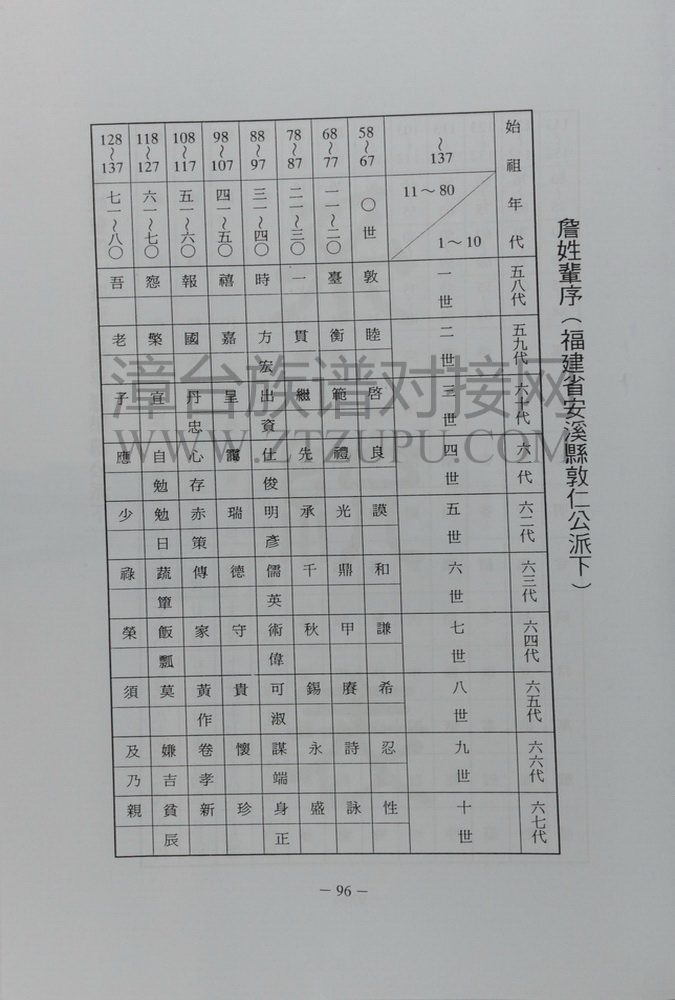 詹姓輩序（福建省安溪縣敦仁公派下）
始祖年代 五八代 五九代 六十代 六一代 六二代 六三代 六四代 六五代 六六代 六七代
～137 11～80 1～10 一世 二世 三世 四世 五世 六世 七世 八世 九世 十世
58～67 〇世 敦 睦 啓 良 謨 和 謙 希 忍 性
68～77 一一～二〇 臺 衡 範 禮 光 鼎 甲 賡 詩 詠
78～87 二一～三〇 一 貫 繼 先 承 千 秋 錫 永 盛
88～97 三一～四〇 時 方 出 仕 明 儒 術 可 謀 身
宏 資 俊 彥 英 偉 淑 端 正
98～107 四一～五〇 禧 嘉 呈 靄 瑞 德 守 貴 懷 珍
108～117 五一～六〇 報 國 丹 心 赤 傳 家 黃 卷 新
忠 存 策 作 孝
118～127 六一～七〇 宜 自 勉 蔬 飯 莫 嫌 貧
勉 日 簞 瓢 吉 辰
128～137 七一～八〇 吾 老 子 應 少 祿 榮 須 及 親
乃
漳台族谱对接网
WWW.ZTZUPU.COM
－96－